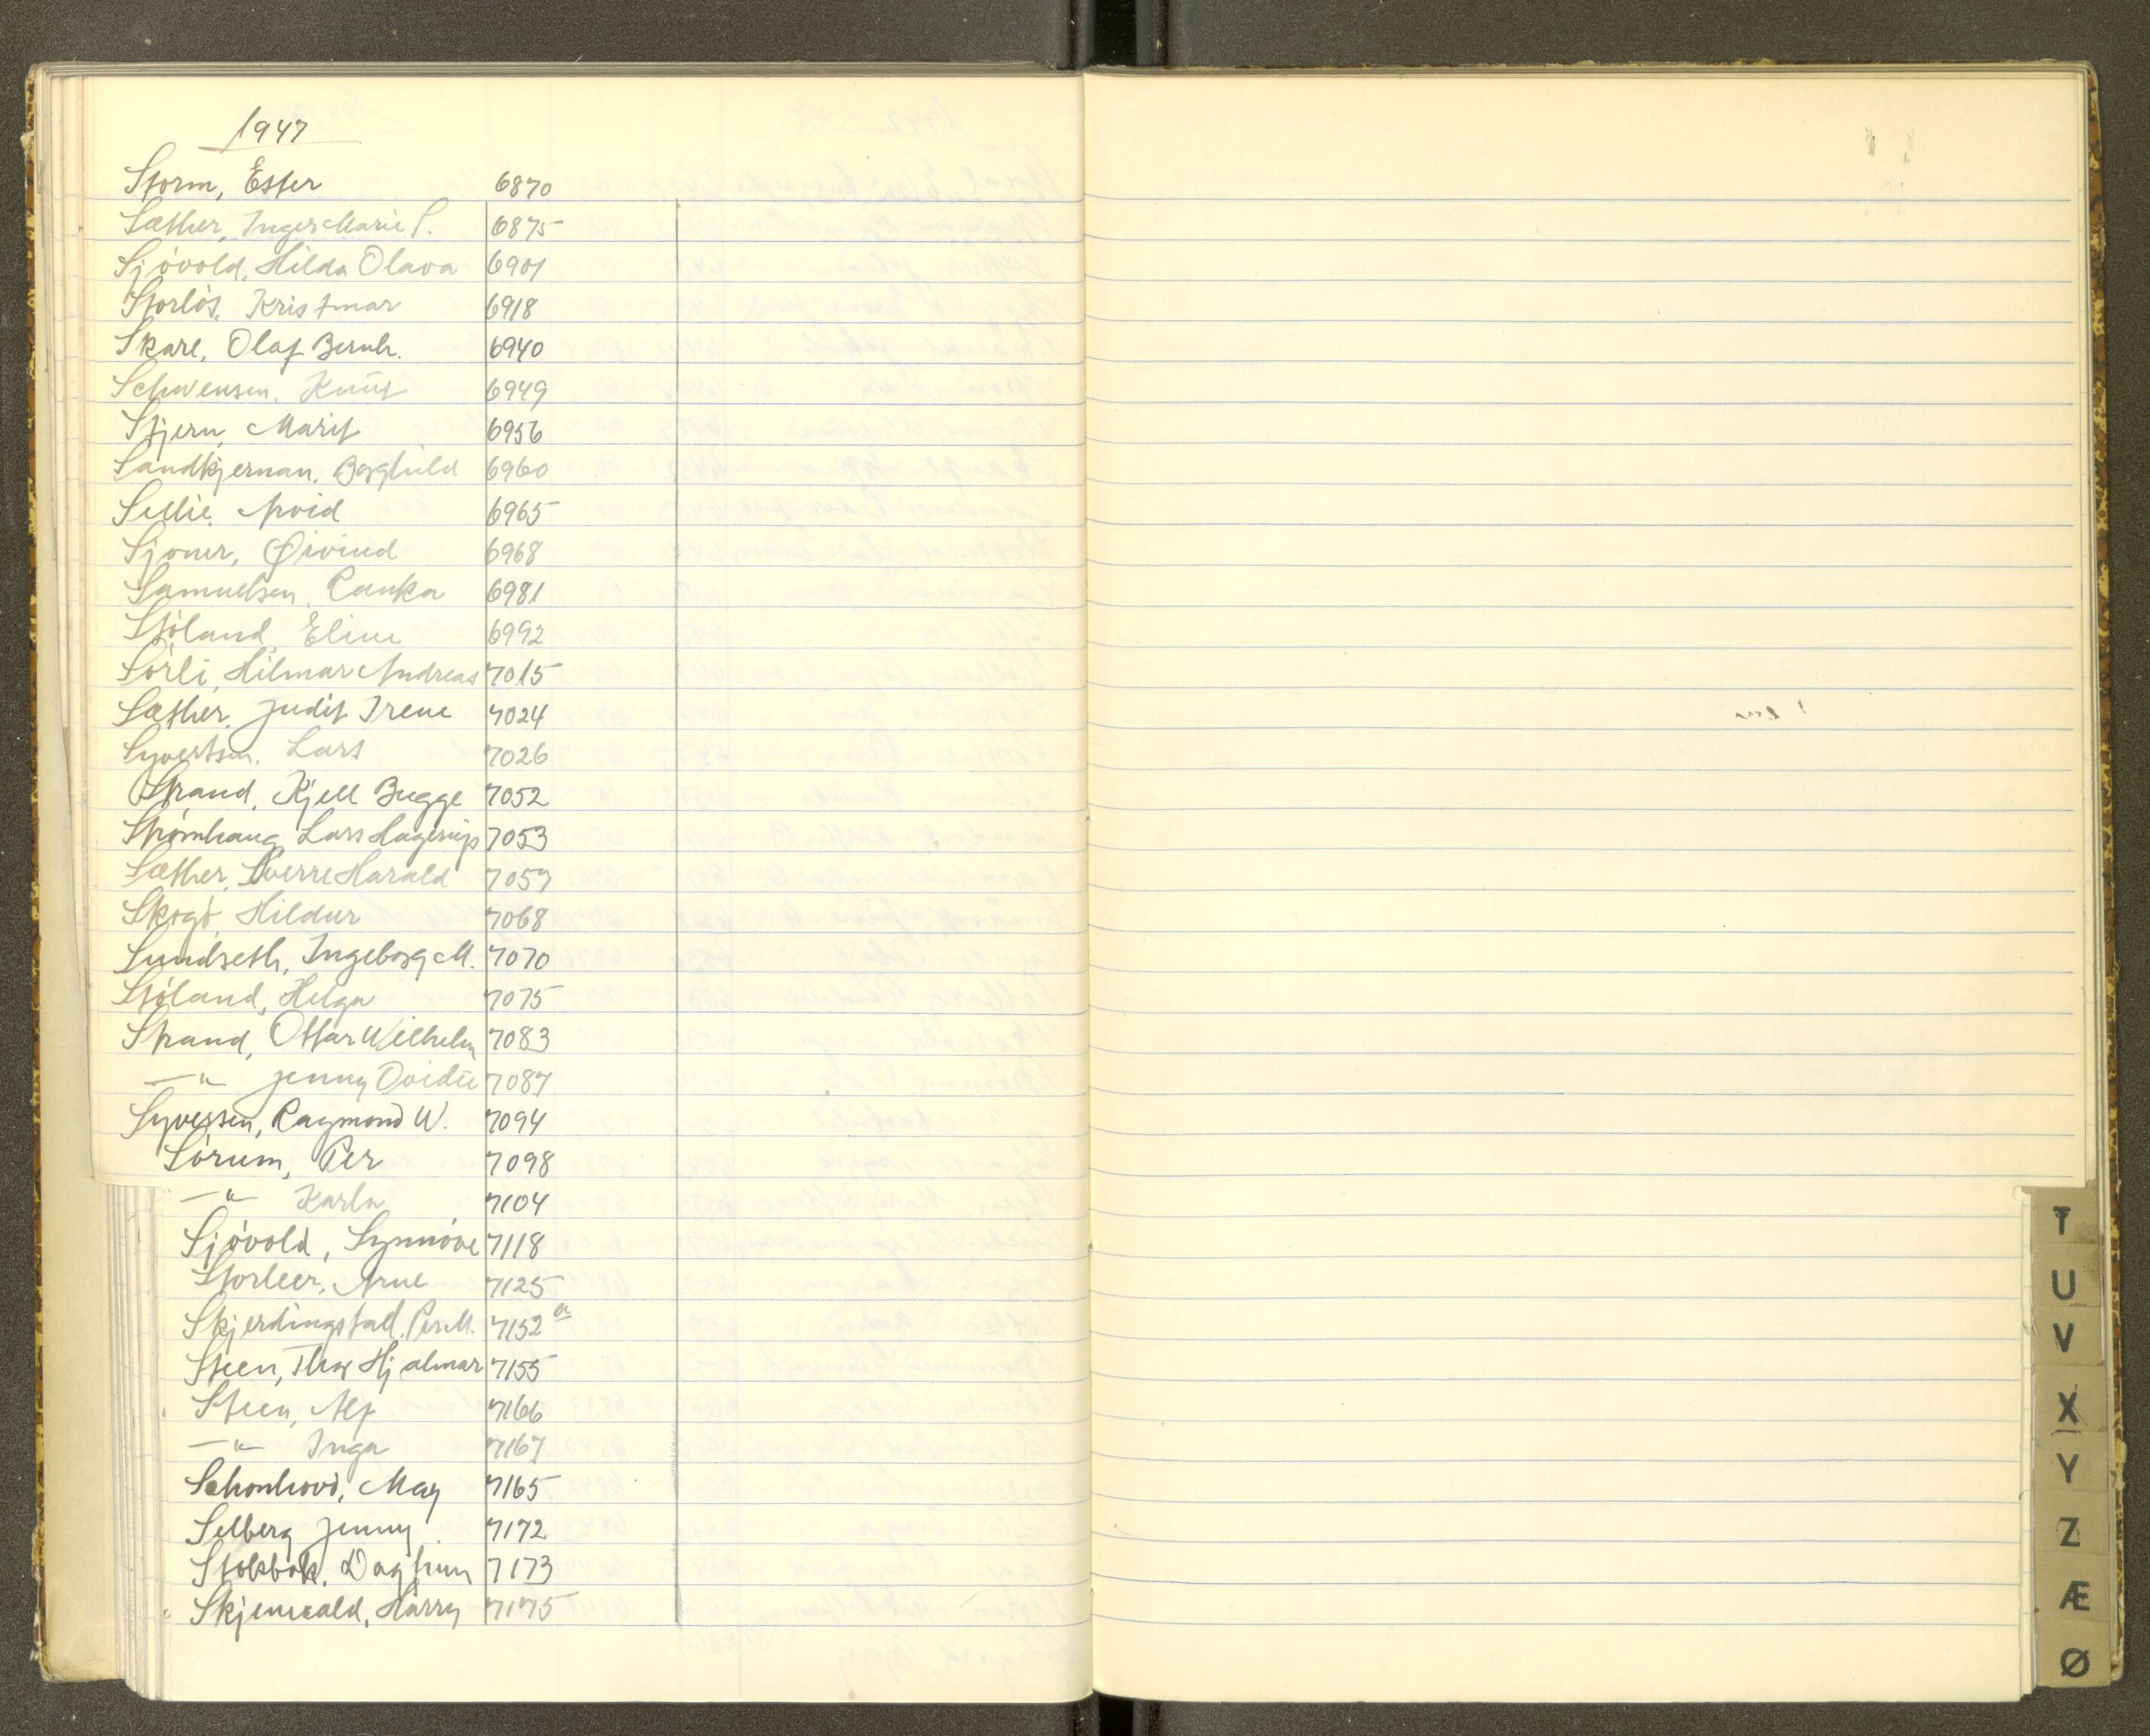 1947
Storm, Ester 6870
Sæther, Inger Marie P. 6875
Sjøvold, Hilda Olava 6901
Storløs, Kristmar 6918
Skare, Olaf Bernh. 6940
Schwensen, Knut 6949
Stjern, Marit 6956
Sandkjernan, Borghild 6960
Sellie, Arvid 6965
Sjoner, Øivind 6968
Samuelsen, Ranka 6981
Støland, Eline 6992
Sørli, Hilmar Andreas 7015
Sæther, Judit Irene 7024
Syvertsen, Lars 7026
Strand, Kjell Bugge 7052
Strømhaug, Lars Hagerup 7053
Sæther, Sverre Harald 7057
Skogø, Hildur 7068
Sundseth, Ingeborg M. 7070
Støland, Helga 7075
Strand, Ottar Wilhelm 7083
—"— Jenny Ovidie 7087
Syversen, Raymond W. 7094
Sørum, Per 7098
—"— Karla 7104
Sjøvold, Synnøve 7118
Storleer, Arne 7125
Skjerdingstad, Per M. 7152 a
Steen, Thor Hjalmar 7155
Steen, Alf 7166
—"— Inga 7167
Schonhovd, May 7165
Selberg Jenny 7172
Stokbak, Dagfinn 7173
Skjenvald, Harry 7175
T
U
V
X
Y
Z
Æ
Ø